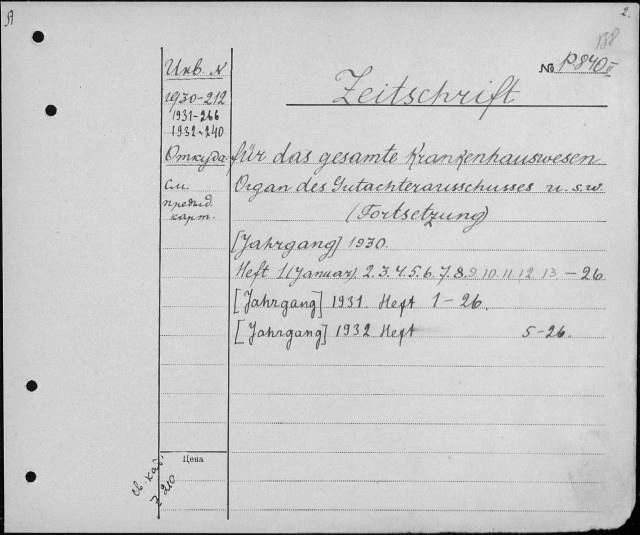 A
2.
138
№ P840 II
Zeitschrift
Инв. N
1930-212
1931-266
1932-240
Откуда
См.
предыд.
карт.
für das gesamte Krankenhauswesen
Organ des Gutachterausschusses u. s. w.
(Fortsetzung)
[Jahrgang] 1930.
Heft 1 (Januar). 2. 3. 4. 5. 6. 7. 8. 9. 10. 11. 12. 13. – 26
[Jahrgang] 1931. Heft 1 – 26.
[Jahrgang] 1932 Heft 5-26.
Цена
св. каб.
Z 210